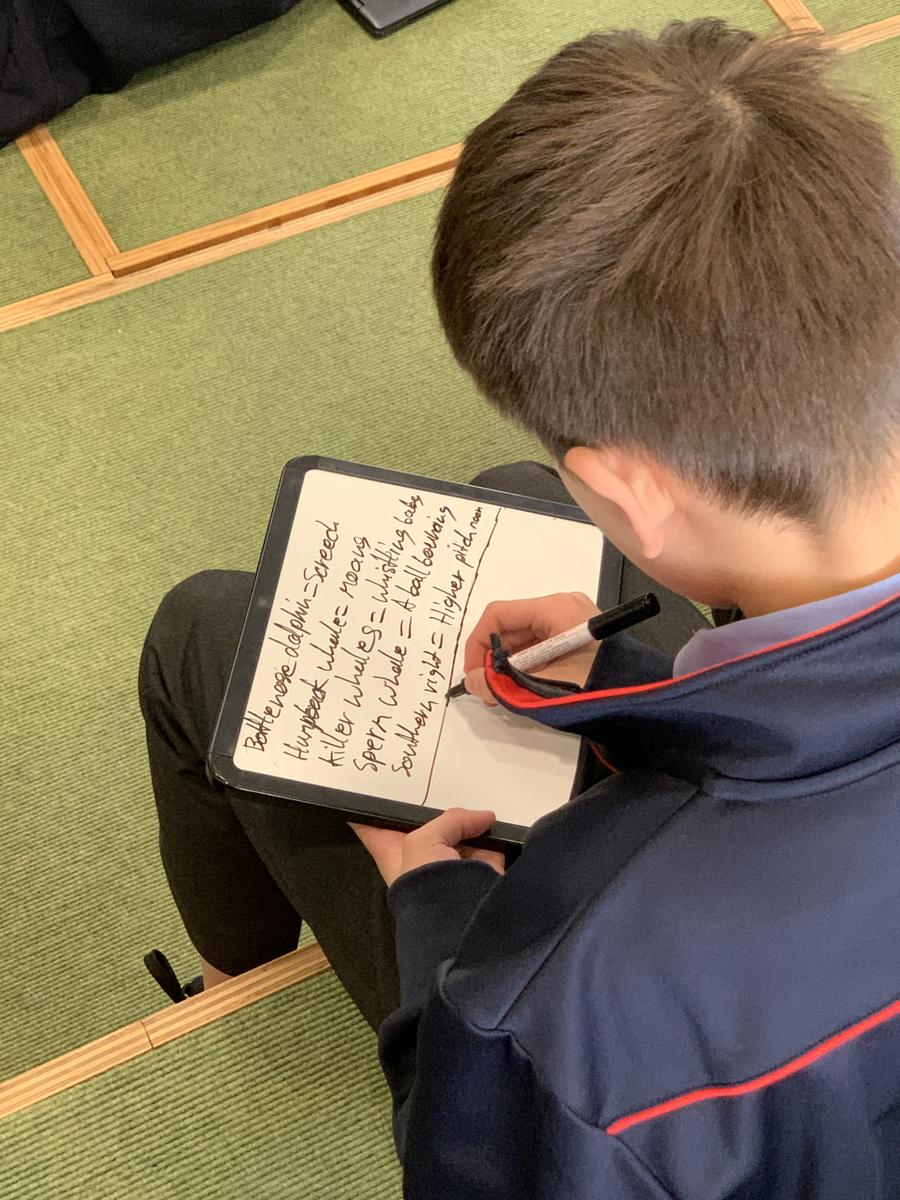 Bottlenose dolphin = Screech
Humpback whale = moans
Killer whales = whistling baby
Sperm whale = A ball bouncing
Southern right = Higher pitch